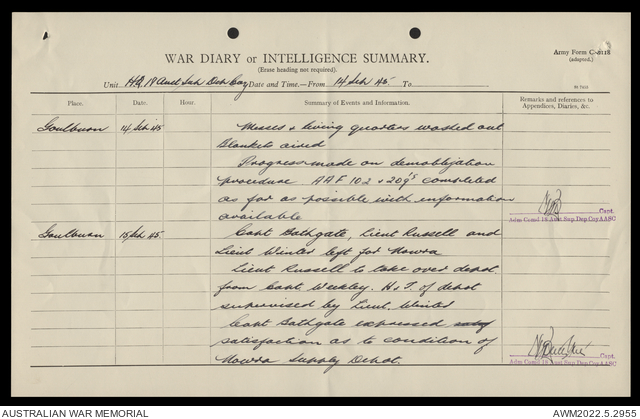 Army Form C.2118
(adapted.)
WAR DIARY or INTELLIGENCE SUMMARY.
(Erase heading not required).
Unit HQ 18 Aust Sub Dep Coy Date and Time.—From 14 Feb 45 To
Place. Date. Hour. Summary of Events and Information. Remarks and references to Appendices, Diaries, &c.
Goulburn 14 Feb 45 Messes & living quarters washed out
Blankets aired
Progress made on demobilization
procedure AAF 102 & 209's completed
as far as possible with information
available
Capt.
Adm Comd 18 Aust.Sup.Dep.Coy AASC
Goulburn 15 Feb 45 Capt Bathgate, Lieut Russell and
Lieut Winter left for Nowra
Lieut Russell to take over depot
from Capt Weekley. H & T. of depot
supervised by Lieut. Winter
Capt Bathgate expressed
satisfaction as to condition of
Nowra Supply Depot.
Capt.
Adm Comd 18 Aust.Sup.Dep.Coy AASC
AUSTRALIAN WAR MEMORIAL
AWM2022.5.2955